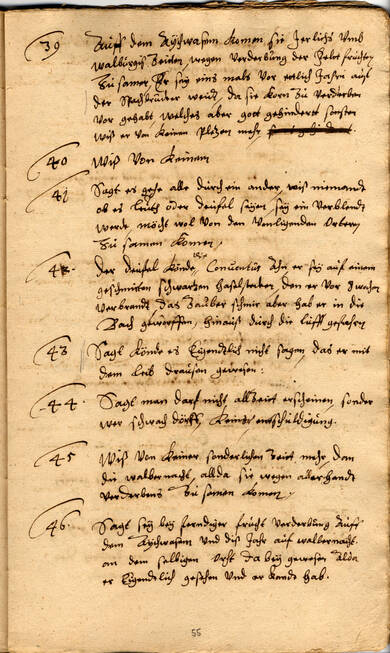 39
Auff dem Aychwasem komen sie Jerlichs umb
walburgis Zeiten, wegen verderbung der Feldt früchten
Zu samen, Er sey eins mals vor etlich Jahrn auf
der weidt, da sie Korn Zu verderben
vor gehabt welches aber gott gehindert, sonsten
wiß er von keinen Plezen mehr
40
Wiß von keinem
41
Sagt es gehe alle durch ein ander, wiß niemandt
ob es leuth oder deufel seyen, sey ein verblendt
werde, möcht wol von den umligenden Orten,
Zu samen komen,
42.
Der deufel könde, Conventus Ihn er sey auf einem
geschnitten schwarzen haselsteken, den er vor 3 wochen
verbrendt, das Zauber schmir aber hab er in die
Bach geworffen, hinaus durch die lufft gefahren
43
Sagt könde es Eigendtlich nicht sagen, das er mit
dem leib drausen gewesen:
44.
Sagt man darf nicht all Zeit erscheinen, sonder
wer schwach dörfft, keiner entschuldigung.
45
Wiß von keiner sonderlichen Zeit mehr dan
die walbernacht, alda sie wegen allerhandt
verderbens Zu samen komen,
46.
Sagt sey bey ferndiger frücht verderbung Auff
dem Aychwasem und diß Jahr auf walbernacht
an dem selbigen Orth da bey gewesen Alda
er Eigendtlich gesehen und er kendt hab.
55